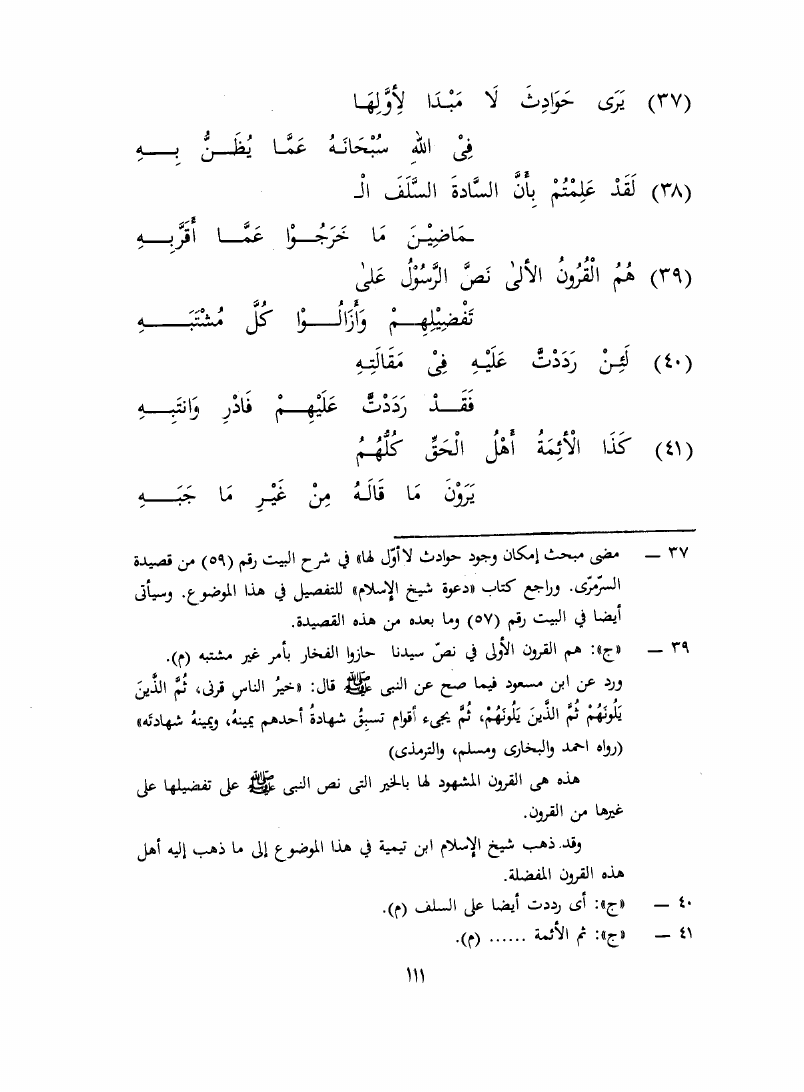 (٣٧) يَرَى حَوَادِثَ لَا مَبْدَا لِأَوَّلِهَا
فِيْ اللهِ سُبْحَانَهُ عَمَّا يُظَــنُّ بِــــهِ
(٣٨) لَقَدْ عَلِمْتُمْ بِأَنَّ السَّادةَ السَّلَفَ الْـ
ـمَاضِيْنَ مَا خَرَجُــوْا عَمَّــا أُقَرِّبِــهِ
(٣٩) هُمُ الْقُرُونُ الألىٰ نَصَّ الرَّسُوْلُ عَلىٰ
تَفْضِيْلِهِــمْ وَأَزَالُــوْا كُلَّ مُشْتَبَــــهِ
(٤٠) لَئِنْ رَدَدْتَّ عَلَيْهِ فِيْ مَقَالَتِهِ
فَقَــدْ رَدَدْتَّ عَلَيْهِــمْ فَادْرِ وَانتَبِــهِ
(٤١) كَذَا الْأَئِمَةُ أَهْلُ الْحَقِّ كُلُّهُمُ
يَرَوْنَ مَا قَالَهُ مِنْ غَيْرِ مَا جَبَــــهِ
٣٧ — مضى مبحث إمكان وجود حوادث لا أوّل لها» في شرح البيت رقم (٥٩) من قصيدة
السرّمرّى. وراجع كتاب «دعوة شيخ الإسلام» للتفصيل في هذا الموضوع. وسيأتى
أيضا في البيت رقم (٥٧) وما بعده من هذه القصيدة.
٣٩ — «ج»: هم القرون الأولى في نصّ سيدنا حازوا الفخار بأمر غير مشتبه (م).
ورد عن ابن مسعود فيما صح عن النبى ﷺ قال: «خيرُ الناسِ قرنى، ثُمَّ الَّذينَ
يَلُونَهُمْ ثُمَّ الذينَ يَلُونَهُمْ، ثُمَّ يجىء أقوام تسبِقُ شهادةُ أحدهم يمينهُ، ويمينهُ شهادتَه»
(رواه احمد والبخارى ومسلم، والترمذى)
هذه هى القرون المشهود لها بالخير التى نص النبى ﷺ على تفضيلها على
غيرها من القرون.
وقد ذهب شيخ الإسلام ابن تيمية في هذا الموضوع إلى ما ذهب إليه أهل
هذه القرون المفضلة.
٤٠ — «ج»: أى رددت أيضا على السلف (م).
٤١ — «ج»: ثم الأئمة ...... (م).
١١١